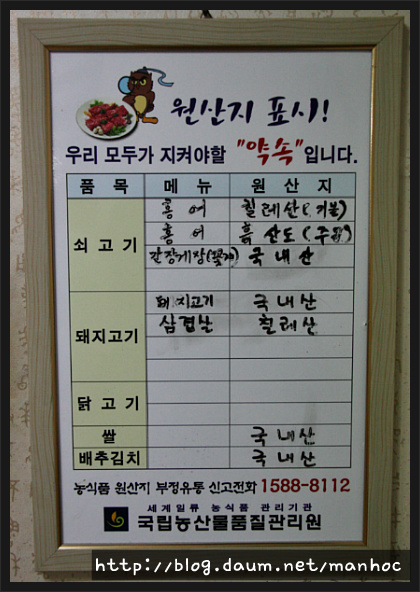 원산지 표시!
우리 모두가 지켜야할 "약속"입니다.
품 목 메 뉴 원 산 지
쇠 고 기
홍 어 칠레산(기본)
홍 어 흑산도(주문)
간장게장(꽃게) 국내산
돼지고기
돼지고기 국내산
삼겹살 칠레산
닭 고 기
쌀 국내산
배추김치 국내산
농식품 원산지 부정유통 신고전화 1588-8112
세계일류 농식품 관리기관
국립농산물품질관리원
http://blog.daum.net/manhoc